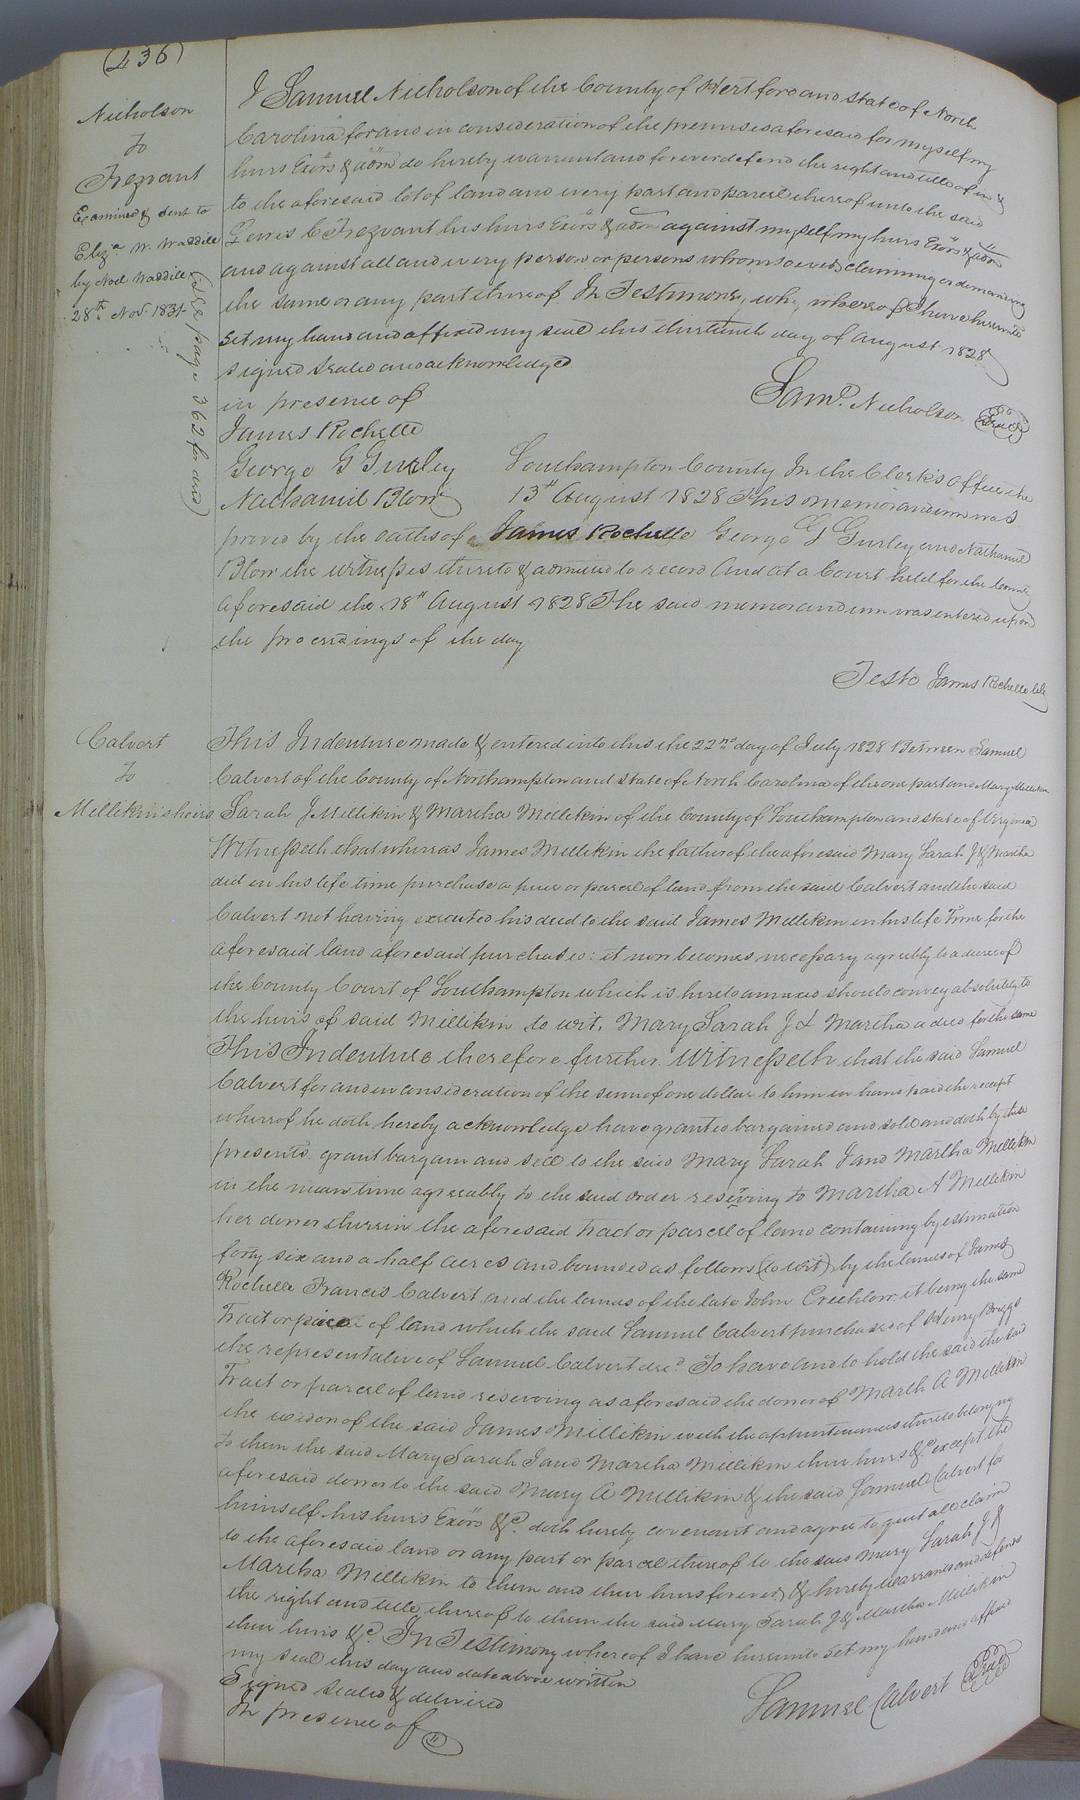 (236)
Nicholson
To
Trezvant
Examined & sent to
Eliz.a W. Waddill
by Noel Waddill
28th Nov. 1831.
(See page 362 for ded)
I Samuel Nicholson of the County of Hertford and State of North
Carolina for and in consideration of the premises aforesaid for myself my
heirs Exors & adm do hereby warrant and forever defend the right and title of in &
to the aforesaid lot of land and every part and parcel thereof unto the said
Lewis C Trezvant his heirs Exors & adm against myself my heirs Exors & adm
and against all and every person or persons whomsoever claiming or demanding
the same or any part thereof In Testimony whereof I have hereunto
set my hand and affixed my seal this thirteenth day of August 1828
signed sealed and acknowledged
in presence of
Saml. Nicholson Seal
James Rochelle
George G Gurley
Nathaniel Blow
Southampton County In the Clerk's office the
13th August 1828 This memorandum was
proved by the oaths of James Rochelle George G Gurley and Nathaniel
Blow the witnesses thereto & admitted to record And at a Court held for the County
aforesaid the 18th August 1828 The said memorandum was entered upon
the proceedings of the day
Teste James Rochelle clk
Calvert
To
Millikin's heirs
This Indenture made & entered into this the 22nd day of July 1828 Between Samuel
Calvert of the County of Northampton and State of North Carolina of the one part and Mary Millikin
Sarah J Millikin & Martha Millikin of the County of Southampton and state of Virginia
Witnesseth that whereas James Millikin the father of the aforesaid Mary Sarah J & Martha
did in his life time purchase a piece or parcel of land from the said Calvert and the said
Calvert not having executed his deed to the said James Millikin in his life Time for the
aforesaid land aforesaid purchased: it now becomes necessary agreeably to a decree of
the County Court of Southampton which is hereto annexed should convey absolutely to
the heirs of said Millikin to wit, Mary Sarah J & Martha a deed for the same
This Indenture therefore further Witnesseth that the said Samuel
Calvert for and in consideration of the sum of one dollar to him in hand paid the receipt
whereof he doth hereby acknowledge have granted bargained and sold and doth by these
presents grant bargain and sell to the said Mary Sarah J and Martha Millikin
in the mean time agreeably to the said order reserving to Martha A Millikin
her dower therein the aforesaid tract or parcel of land containing by estimation
forty six and a half acres and bounded as follows (to wit) by the lands of James
Rochelle Francis Calvert and the lands of the late John Crichlow it being the same
Tract or piece of land which the said Samuel Calvert purchased of Henry Briggs
the representative of Samuel Calvert decd. To have and to hold the said the said
Tract or parcel of land reserving as aforesaid the dower of Marth A Millikin
the widow of the said James Millikin with the appurtenances thereto belonging
to them the said Mary Sarah J and Martha Millikin their heirs &c. except the
aforesaid dower to the said Mary A Millikin & the said Samuel Calvert for
himself his heirs Exors &c. doth hereby covenant and agree to quit all claim
to the aforesaid land or any part or parcel thereof to the said Mary Sarah J &
Martha Millikin to them and their heirs forever & hereby warrants and defends
the right and title thereof to them the said Mary Sarah J & Martha Millikin
their heirs &c. In Testimony whereof I have hereunto set my hand and affixed
my seal this day and date above written
Signed sealed & delivered
In presence of
Samuel Calvert Seal